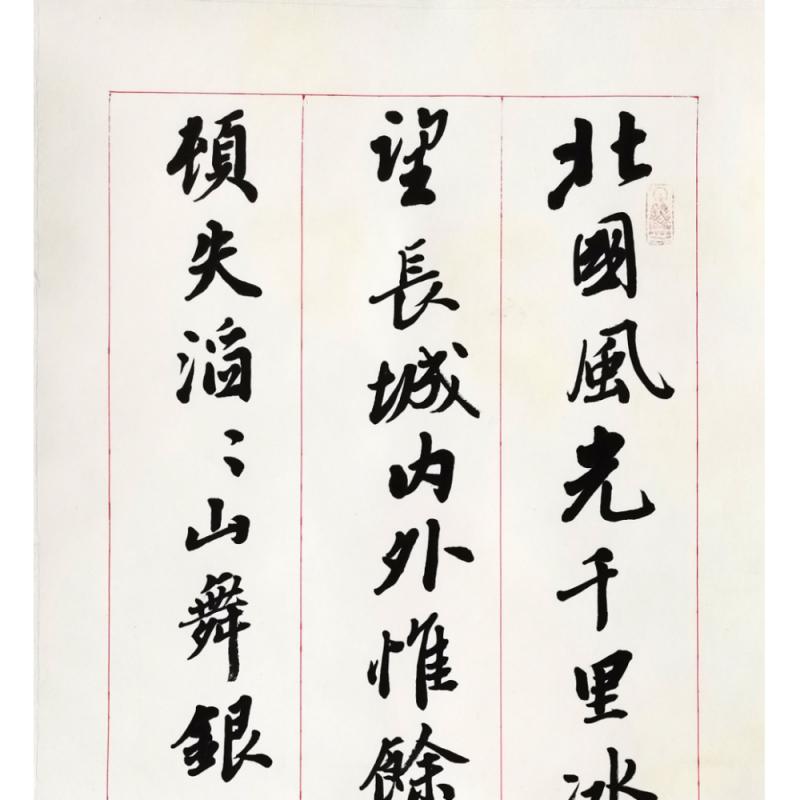 北國風光千里冰
望長城內外惟餘
頓失滔〻山舞銀